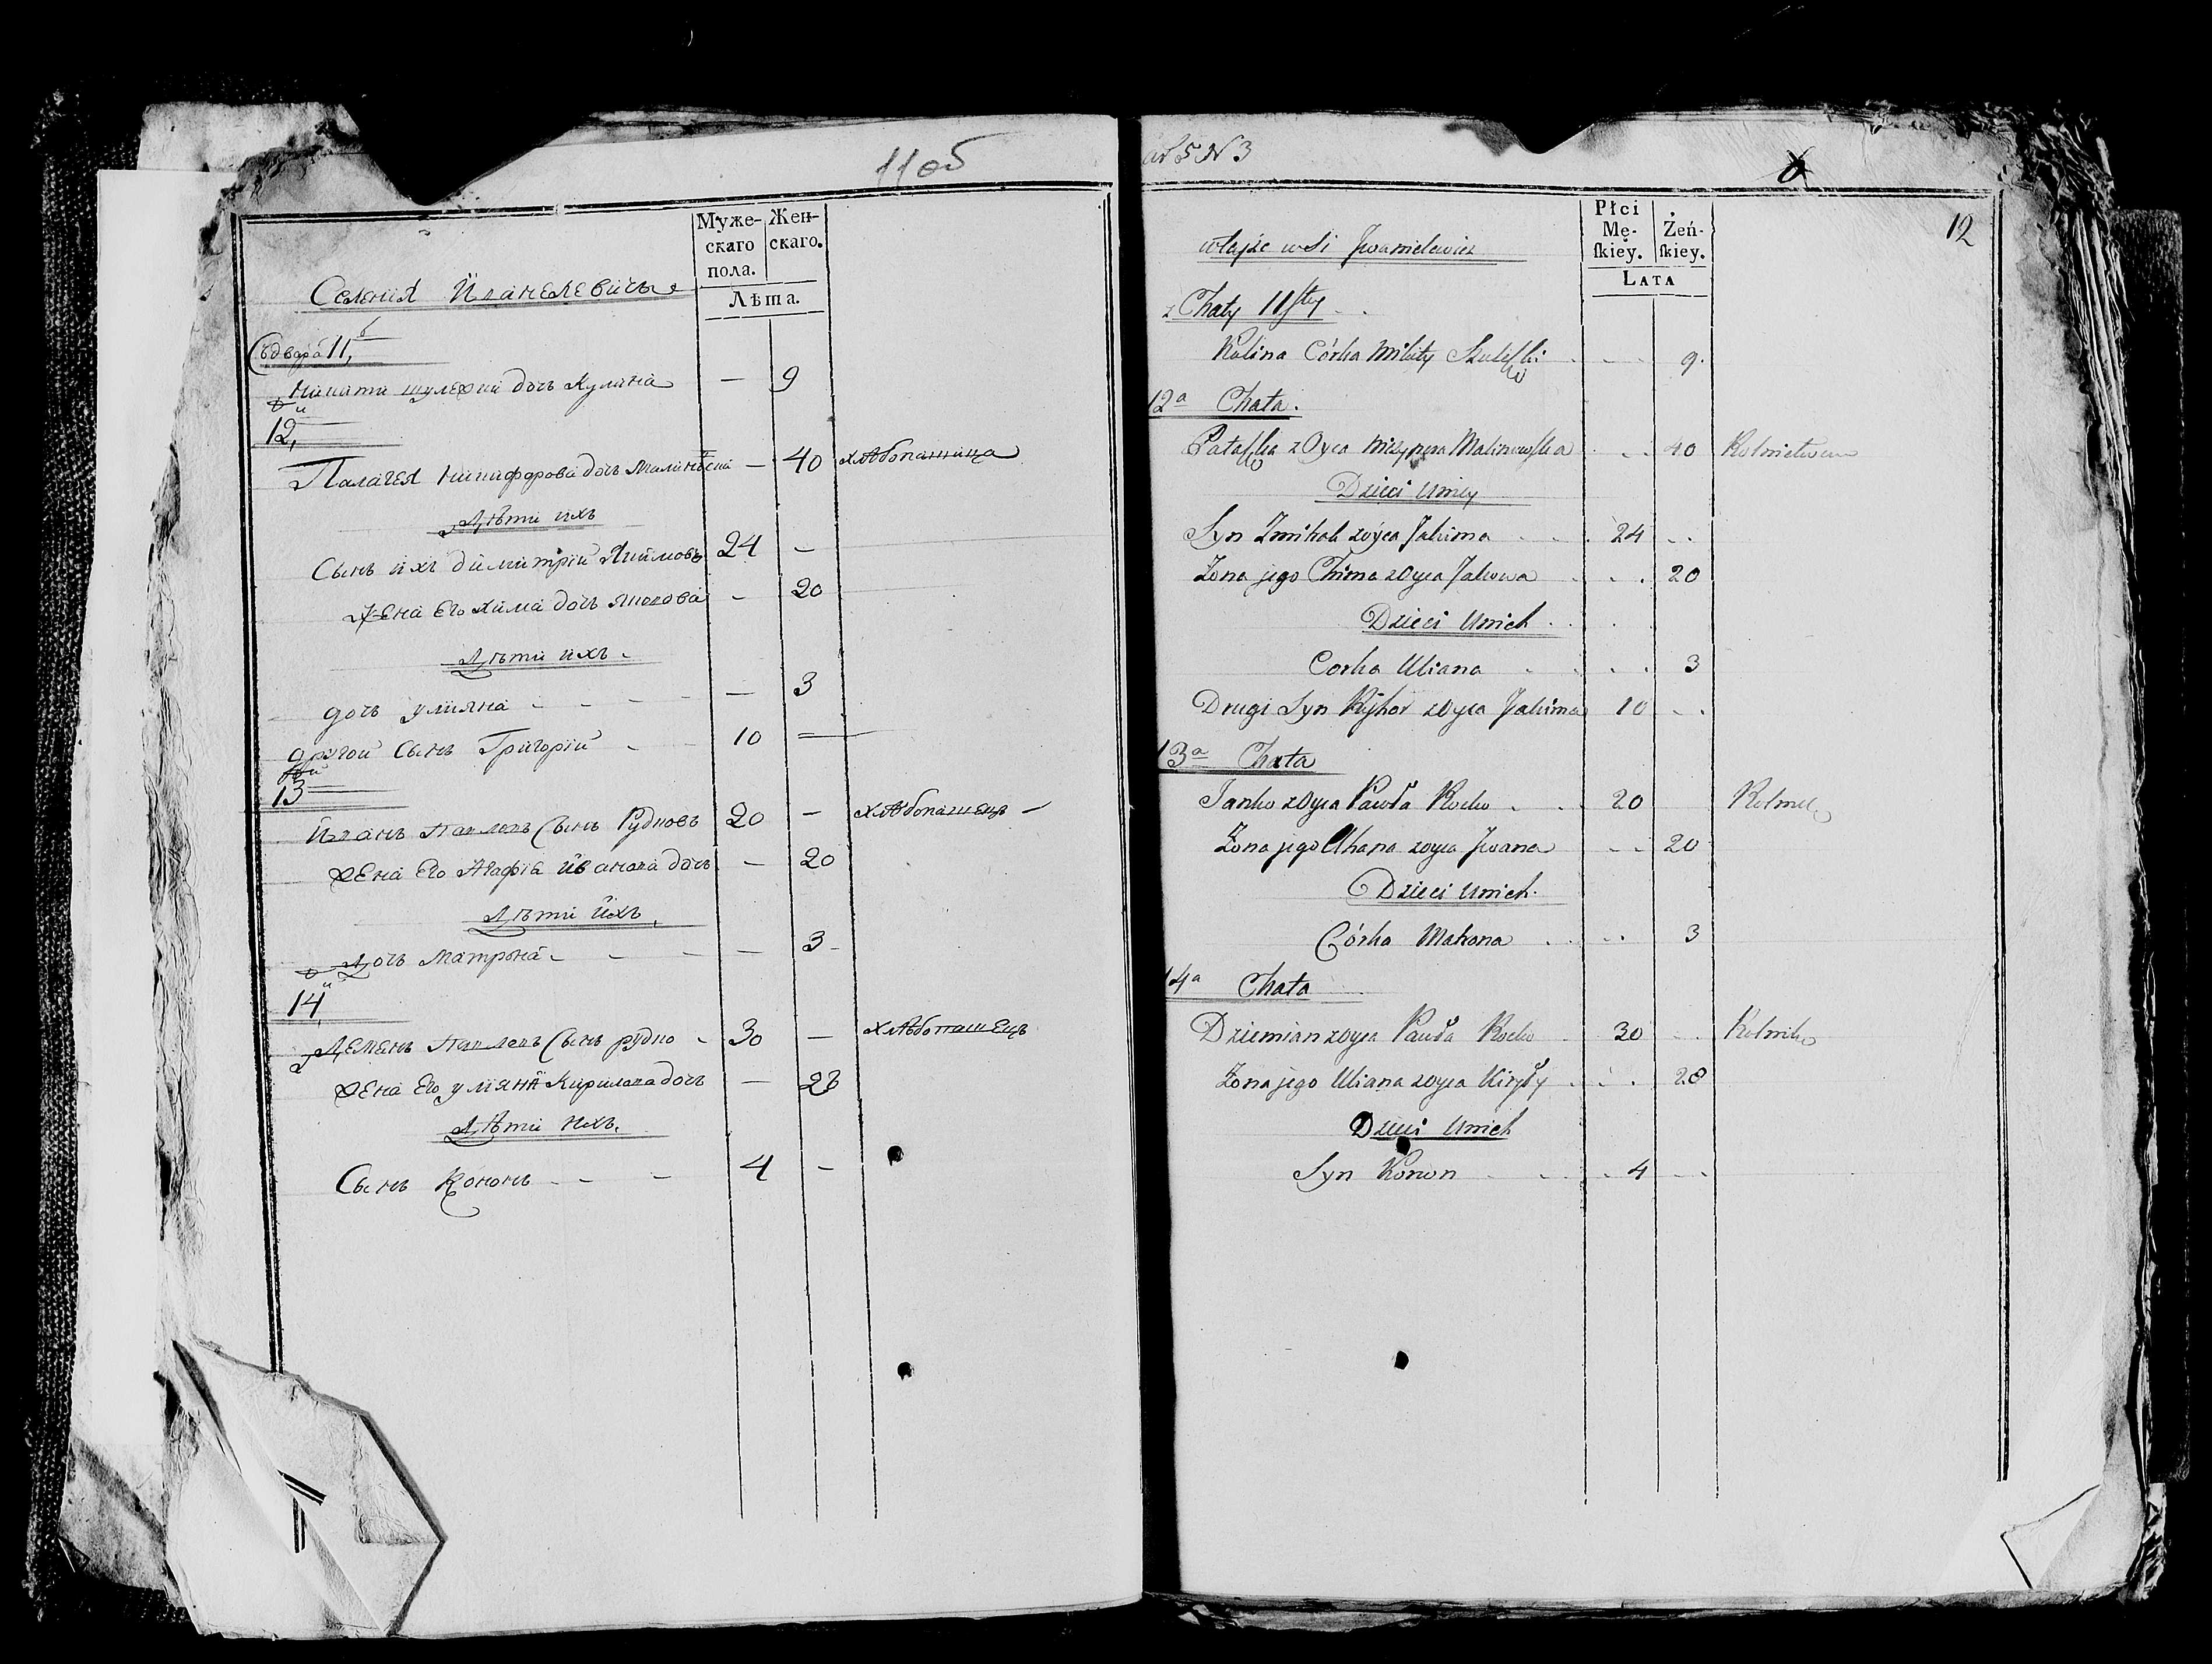 11 об
Муже- Жен-
скаго скаго.
пола.
Лѣта.
Селенія Иванелевичъ
Съ двора 11,
Никити дочь Кулина — 9
12,
Палагея Никифорова дочь — 40 хлѣбопашица
Дѣти ихъ
Сынъ ихъ Димитрій Якимовъ 24 —
жена Его Хима дочь Якова — 20
Дѣти ихъ
дочь Улияна — 3
другой Сынъ Григорій 10 —
13
Иванъ Павловъ Сынъ Рудковъ 20 — хлѣбопашецъ —
жена Его Агафія Иванова дочь — 20
Дѣти ихъ
Дочь Матрона — 3
14
Демень Павловъ Сынъ 30 — хлѣбопашецъ
жена Его Улияна Кирилова дочь — 28
Дѣти ихъ.
Сынъ Кононъ 4 —
5 N 3
12
Płci
Mę- Żeń-
ſkiey. ſkiey.
LATA
wtajże wsi Iwanielewicz
z Chaty 11sty
Kulina Córka Mikity 9.
12a Chata.
z Oyca Malinowska 40
Dzieci Uniey
Syn Zmitrok zoyca Jakima 24
Żona jego Chima zOyca Jakowa 20
Dzieci Unich
Corka Uliana 3
Drugi Syn Ryhor zOyca Jakima 10
13a Chata
Janko zOyca Pawła 20
Żona jego Uhapa zoyca Jwana 20
Dzieci Unich
Córka Matrona 3
14a Chata
Dziemian zoyca Pawła 30
Żona jego Uliana zoyca Kiryły 28
Dzieci Unich
Syn Konon 4